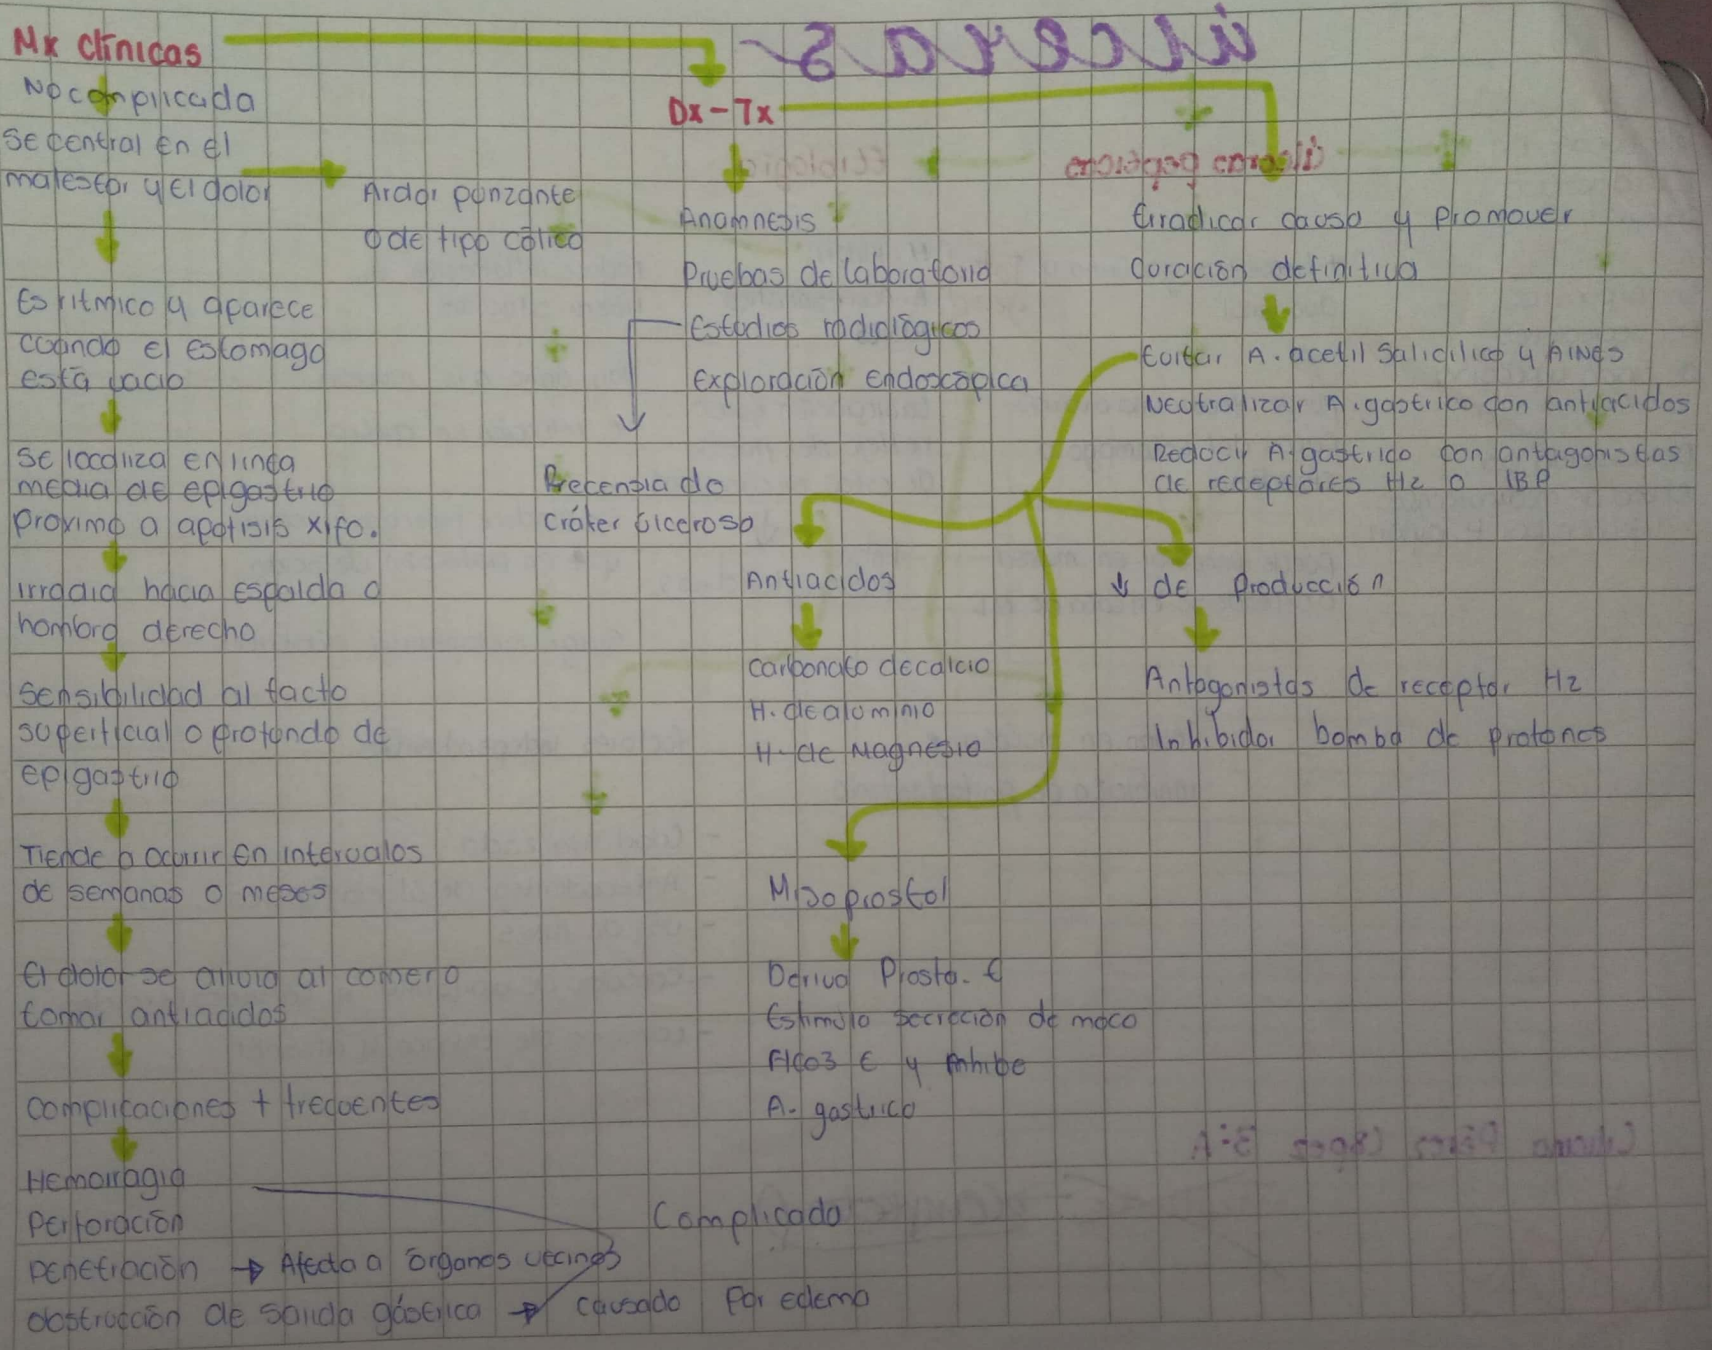 Mx Clínicas
No complicada
Se central en el
malestar y el dolor
Ardor punzante
o de tipo cólico
Es rítmico y aparece
cuando el estomago
está vacio
Se localiza en linea
media de epigastrio
proximo a apofisis xifo.
Irradia hacia espalda o
hombro derecho
Sensibilidad al tacto
superficial o profundo de
epigastrio
Tiende a ocurrir en intervalos
de semanas o meses
El dolor se alivia al comer o
tomar antiacidos
Complicaciones + frecuentes
Hemorragia
Perforación
Penetración → Afecta a órganos vecinos
obstrucción de salida gástrica → causado por edema
Complicada
Dx-Tx
Anamnesis
Pruebas de laboratorio
Estudios radiológicos
Exploración endoscópica
Precensia de
cráter ulceroso
Erradicar causa y promover
curación definitiva
Evitar A. acetil Salicilico y AINES
Neutralizar A. gastrico con antiacidos
Reducir A. gastrico con antagonistas
de receptores H2 o IBP
Antiacidos
Carbonato de calcio
H. de aluminio
H. de Magnesio
↓ de Producción
Antagonistas de receptor H2
Inhibidor bomba de protones
Misoprostol
Deriva Prosta. E
Estimula secreción de moco
HCO3 E y inhibe
A. gastrico
úlceras
Etiologia
Úlceras pepticas
3:A